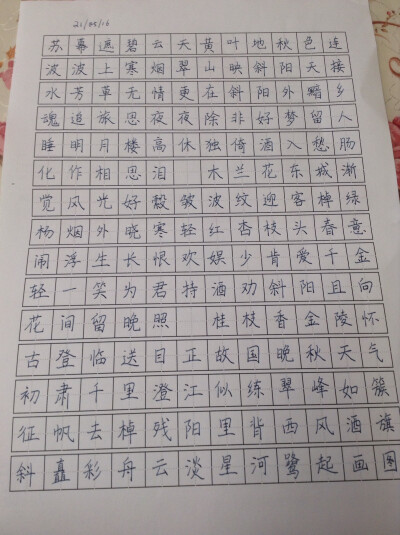 21/05/16
苏幕遮碧云天黄叶地秋色连
波波上寒烟翠山映斜阳天接
水芳草无情更在斜阳外黯乡
魂追旅思夜夜除非好梦留人
睡明月楼高休独倚酒入愁肠
化作相思泪 木兰花东城渐
觉风光好縠皱波纹迎客棹绿
杨烟外晓寒轻红杏枝头春意
闹浮生长恨欢娱少肯爱千金
轻一笑为君持酒劝斜阳且向
花间留晚照 桂枝香金陵怀
古登临送目正故国晚秋天气
初肃千里澄江似练翠峰如簇
征帆去棹残阳里背西风酒旗
斜矗彩舟云淡星河鹭起画图